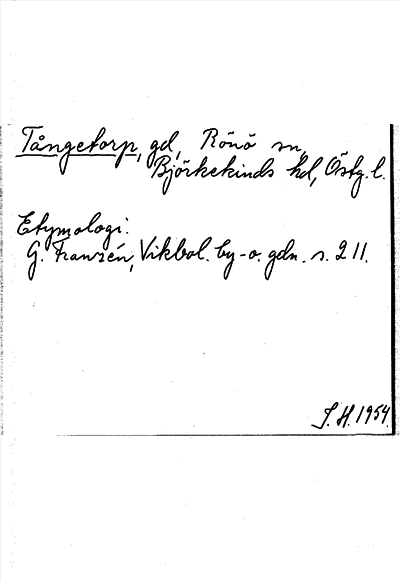 Tångetorp, gd, Rönö sn,
Björkekinds hd, Östg. l.
Etymologi:
G. Franzén, Vikbol. by- o. gdn. s. 211.
S. H. 1954.